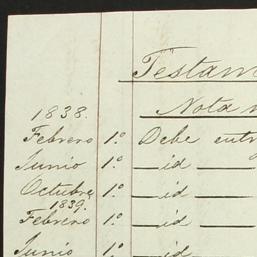 Testam
Nota
1838.
Febrero 1.º Debe entr
Junio 1.º id
Octubre 1.º id
1839.
Febrero 1.º id
Junio 1.º id